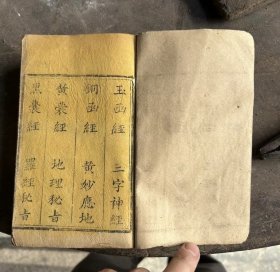 玉函經 二字神經
銅函經 黃妙應地
黃蒙經 地理秘旨
黑囊經 羅經秘旨